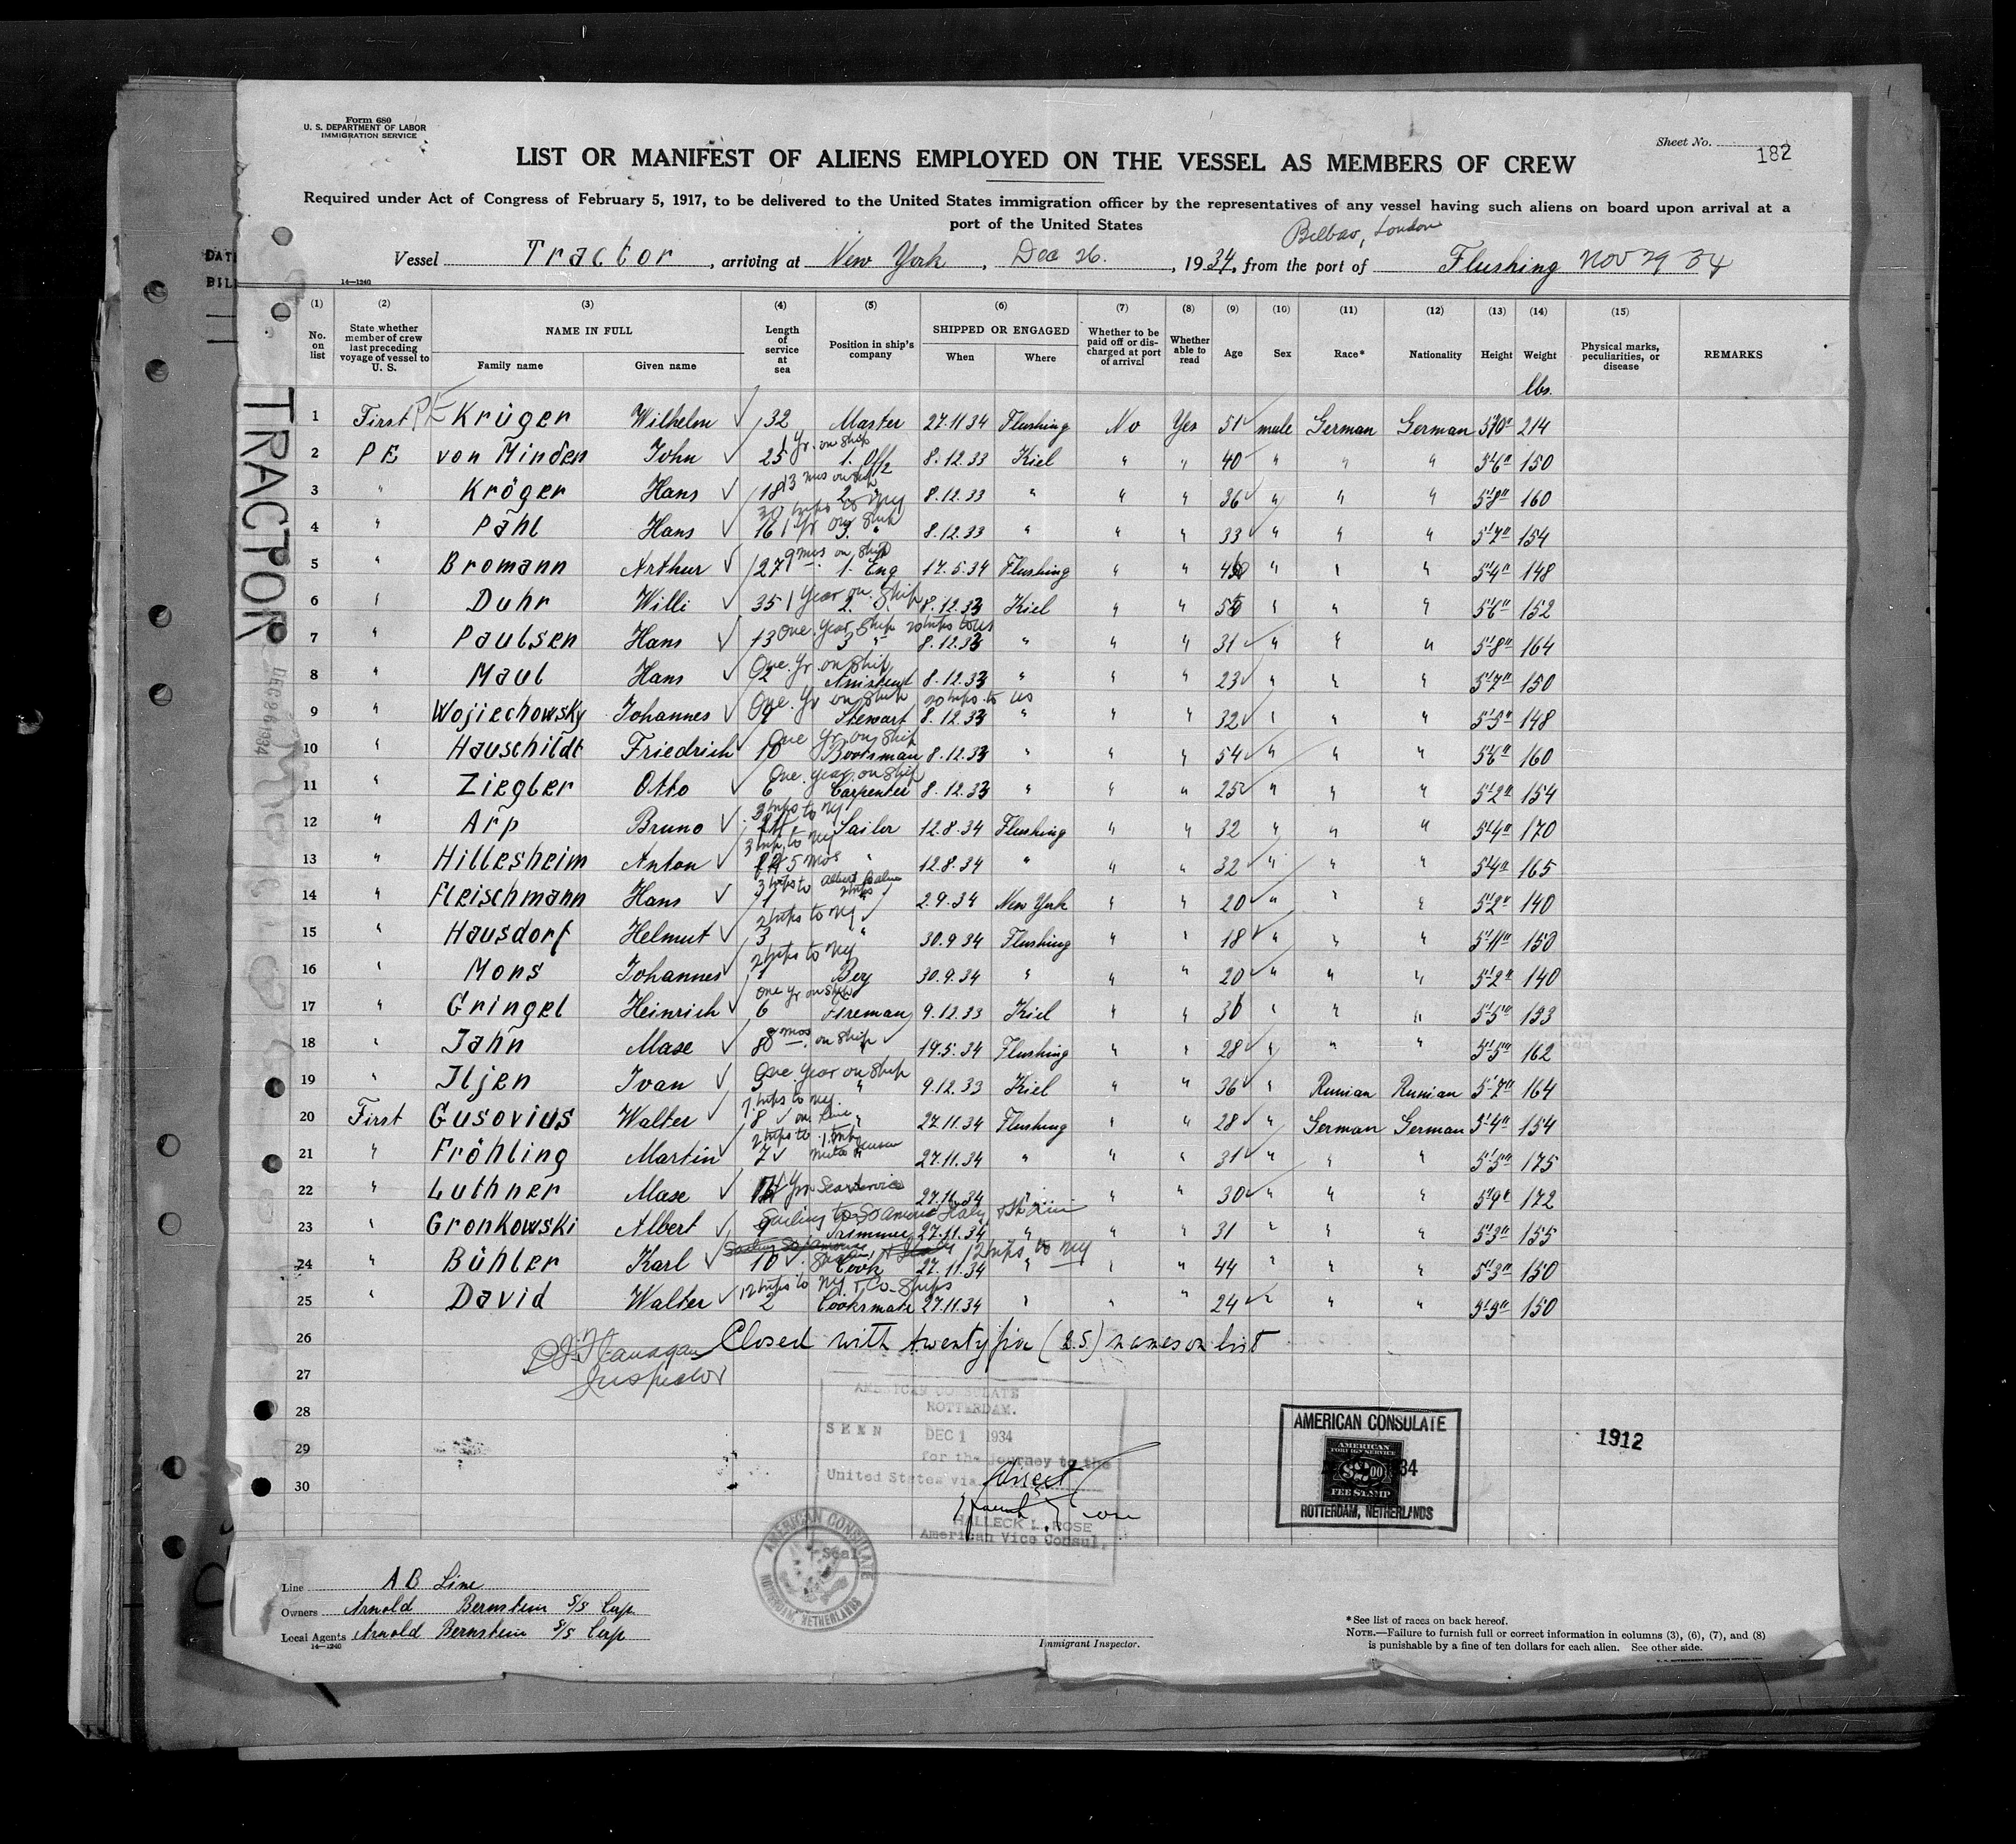 Form 680
U. S. DEPARTMENT OF LABOR
IMMIGRATION SERVICE
Sheet No. 182
LIST OR MANIFEST OF ALIENS EMPLOYED ON THE VESSEL AS MEMBERS OF CREW
Required under Act of Congress of February 5, 1917, to be delivered to the United States immigration officer by the representatives of any vessel having such aliens on board upon arrival at a
port of the United States
Bilbao, London
Vessel Tractor, arriving at New York, Dec 26., 1934, from the port of Flushing Nov 29 34
14—1240
(1) (2) (3) (4) (5) (6) (7) (8) (9) (10) (11) (12) (13) (14) (15)
No. on list State whether member of crew last preceding voyage of vessel to U. S. NAME IN FULL Family name Given name Length of service at sea Position in ship's company SHIPPED OR ENGAGED When Where Whether to be paid off or discharged at port of arrival Whether able to read Age Sex Race* Nationality Height Weight Physical marks, peculiarities, or disease REMARKS
lbs.
1 First PE Krüger Wilhelm 32 Master 27.11.34 Flushing No Yes 51 male German German 5'10" 214
1 yr. on ship
2 PE von Minden John 25 1. Off 8.12.33 Kiel " " 40 " " " 5'6" 150
13 mos on ship
3 " Kröger Hans 18 2. " 8.12.33 " " " 36 " " " 5'8" 160
1 yr on ship
4 " Pahl Hans 16 3. " 8.12.33 " " 33 " " " 5'7" 154
9 mos on ship
5 " Bromann Arthur 27 1. Eng 17.5.34 Flushing " " " " " 5'4" 148
1 year on ship
6 " Duhr Willi 35 2. " 8.12.33 Kiel " " " " " 5'6" 152
One year ship 20 trips to US
7 " Paulsen Hans 13 3 " 8.12.33 " " " 31 " " " 5'8" 164
One yr. on ship
8 " Maul Hans 2 Assistent 8.12.33 " " " 23 " " " 5'7" 150
One yr on ship 20 trips to US
9 " Wojiechowsky Johannes 9 Stewart 8.12.33 " " " 32 " " " 5'5" 148
One yr on ship
10 " Hauschildt Friedrich 10 Bootsman 8.12.33 " " " 54 " " " 5'6" 160
One year on ship
11 " Ziegler Otto 6 Carpenter 8.12.33 " " " 25 " " " 5'2" 154
3 trips to NY
12 " Arp Bruno Sailor 12.8.34 Flushing " " 32 " " " 5'4" 170
3 trips to NY
13 " Hillesheim Anton 5 mos " 12.8.34 " " " 32 " " " 5'4" 165
3 trips to Albert Ballin
14 " Fleischmann Hans 1 " 2.9.34 New York " " 20 " " " 5'2" 140
2 trips to NY
15 " Hausdorf Helmut 3 " 30.9.34 Flushing " " 18 " " " 5'11" 150
2 trips to NY
16 " Mons Johannes 1 Boy 30.9.34 " " " 20 " " " 5'2" 140
One yr on ship
17 " Gringel Heinrich 6 Fireman 9.12.33 Kiel " " " " " 5'5" 133
8 mos. on ship
18 " Jahn Maxe 8 " 19.5.34 Flushing " " 28 " " " 5'5" 162
One year on ship
19 " Iljen Ivan 5 " 9.12.33 Kiel " " 36 " Russian Russian 5'7" 164
7 trips to NY.
20 First Gusovius Walter 8 on line " 27.11.34 Flushing " " 28 " German German 5'4" 154
2 trips to
21 " Fröhling Martin 7 " 27.11.34 " " 31 " " " 5'5" 175
Yrs Sea Service
22 " Luthner Maxe 27.11.34 " " " 30 " " " 5'9" 172
Sailing to So America Italy
23 " Gronkowski Albert 9 Trimmer 27.11.34 " " " 31 " " " 5'3" 155
12 trips to NY
24 " Bühler Karl 10 Cook 27.11.34 " " " 44 " " " 5'3" 150
12 trips to NY. Co. Ships
25 " David Walter 2 Cooksmate 27.11.34 " " " 24 " " " 5'5" 150
26 Closed with twenty five (25) names on list
Flanagan
Inspector
27
28
29
30
TRACTOR
DEC 26 1934
AMERICAN CONSULATE
ROTTERDAM.
SEEN DEC 1 1934
for the journey to the
United States via direct
HALLECK L. ROSE
American Vice Consul.
Seal
AMERICAN CONSULATE
ROTTERDAM, NETHERLANDS
AMERICAN CONSULATE
AMERICAN
FOREIGN SERVICE
$2.00
FEE STAMP
ROTTERDAM, NETHERLANDS
1912
Line A B Line
Owners Arnold Bernstein S/S Corp.
Local Agents Arnold Bernstein S/S Corp
14—1240
Immigrant Inspector.
*See list of races on back hereof.
NOTE.—Failure to furnish full or correct information in columns (3), (6), (7), and (8)
is punishable by a fine of ten dollars for each alien. See other side.